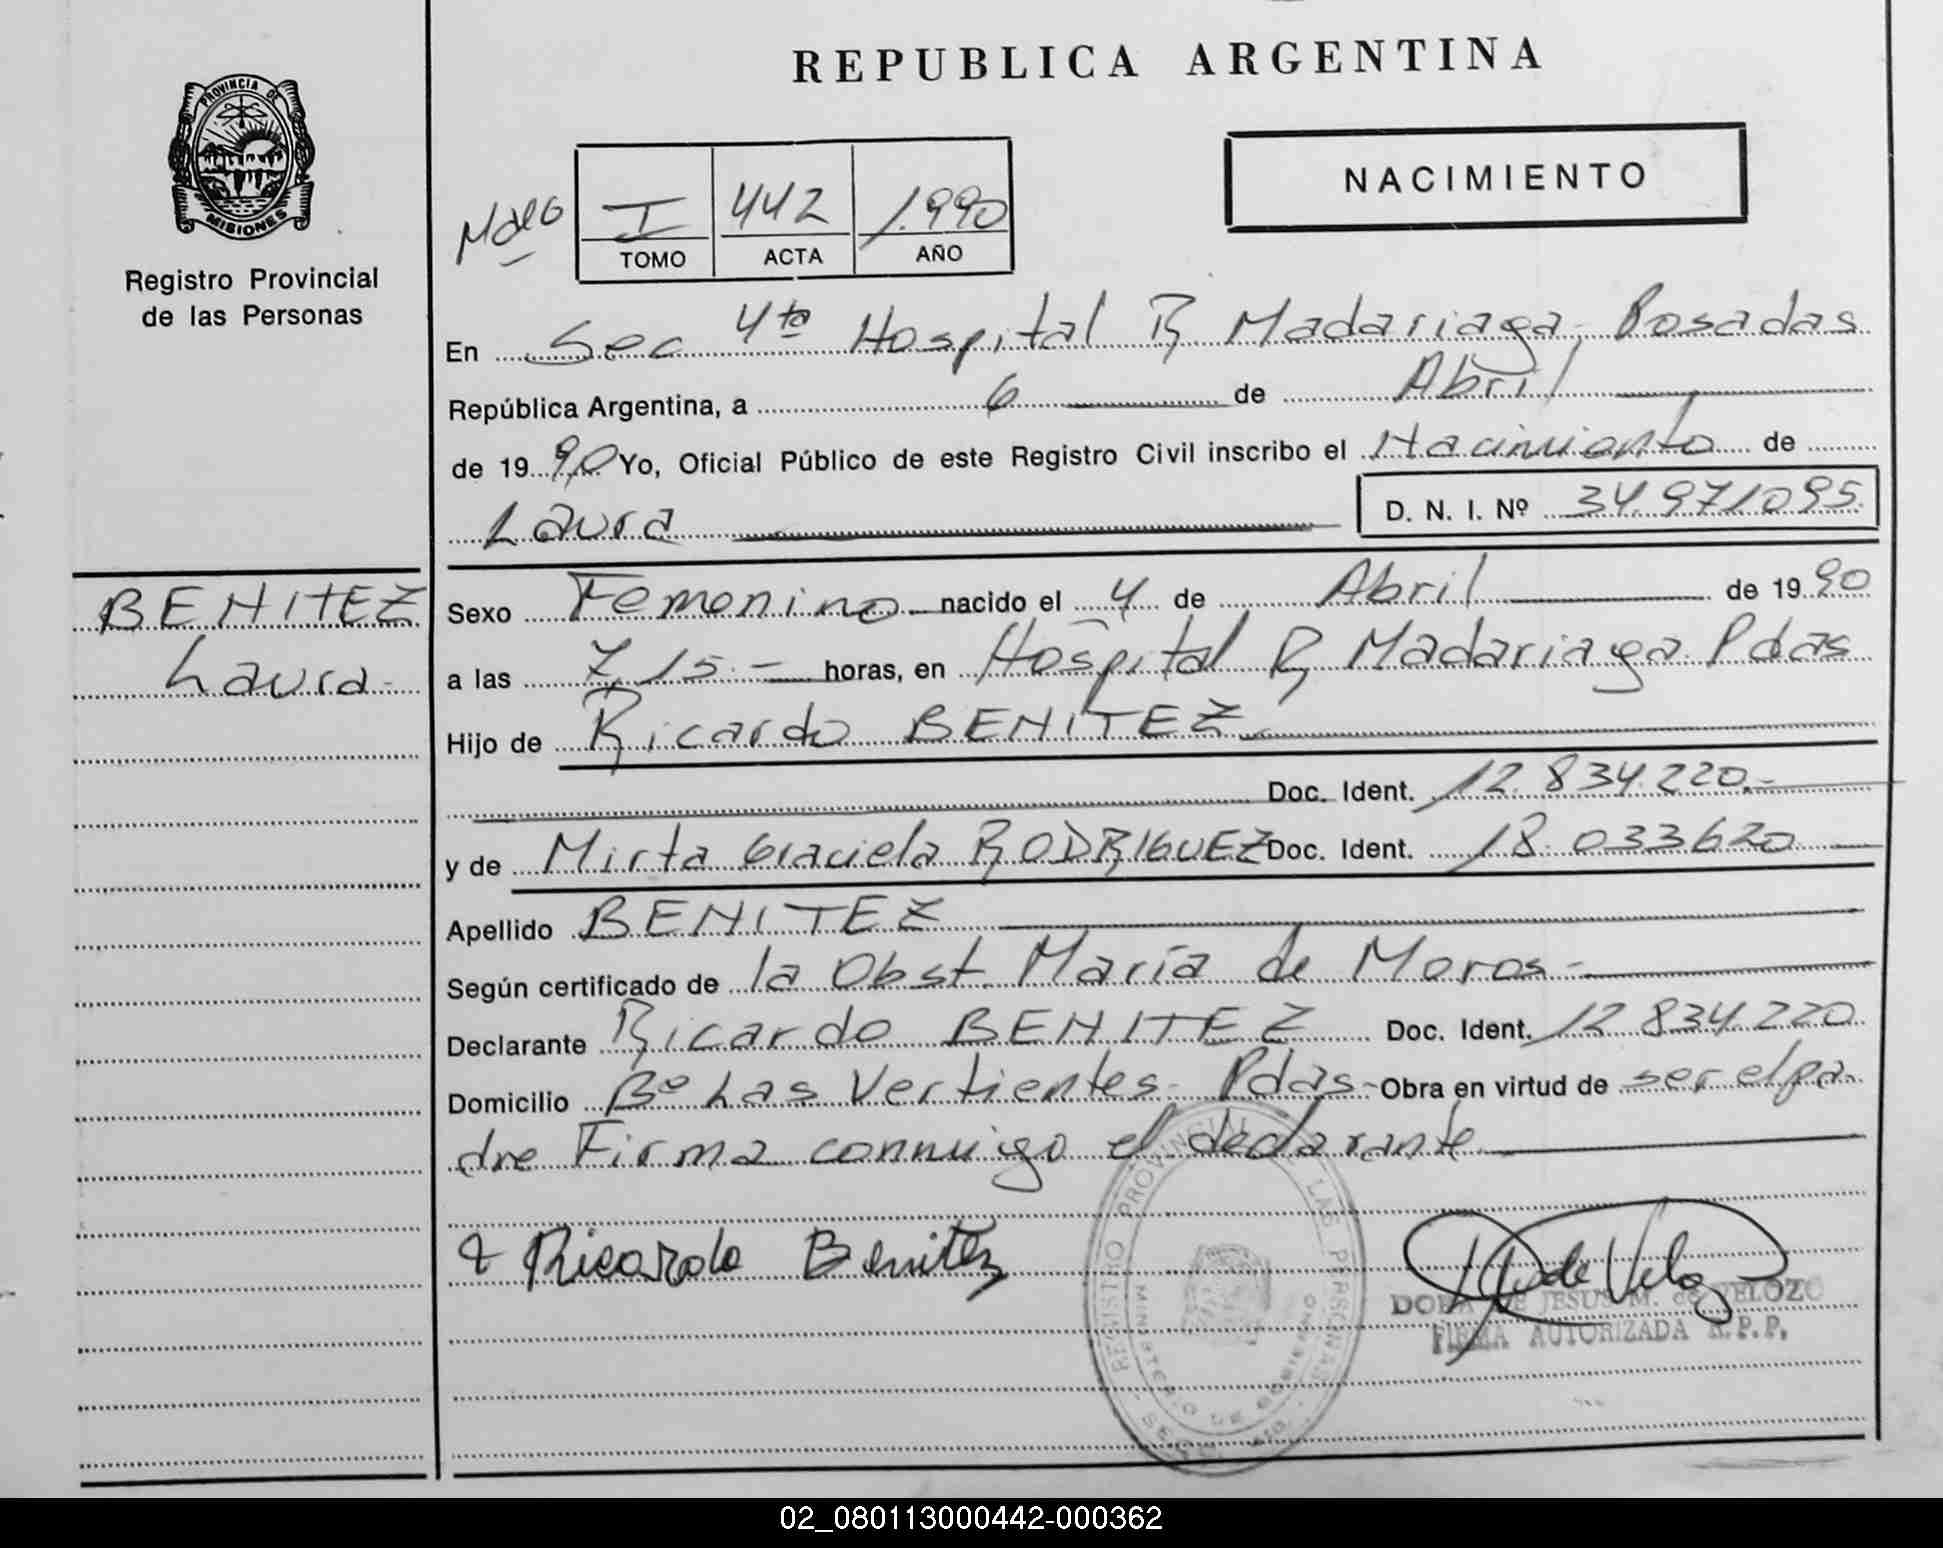 REPUBLICA ARGENTINA
PROVINCIA DE
MISIONES
Registro Provincial
de las Personas
NACIMIENTO
I 442 1.990
TOMO ACTA AÑO
En Sec 4ta Hospital R Madariaga Posadas
República Argentina, a 6 de Abril
de 1990 Yo, Oficial Público de este Registro Civil inscribo el Nacimiento de
Laura D. N. I. Nº 34.971095
BENITEZ
Laura
Sexo Femenino nacido el 4 de Abril de 1990
a las 7,15.- horas, en Hospital R Madariaga Pdas
Hijo de Ricardo BENITEZ
Doc. Ident. 12.834.220.-
y de Mirta Graciela RODRIGUEZ Doc. Ident. 18.033620
Apellido BENITEZ
Según certificado de la Obst. María de Moros-
Declarante Ricardo BENITEZ Doc. Ident. 12.834.220
Domicilio Bº Las Vertientes- Pdas- Obra en virtud de ser el pa
dre Firma conmigo el declarante
Ricardo Benitez
REGISTRO PROVINCIAL LAS PERSONAS
MINISTERIO DE GOBIERNO
DORA DE JESUS M. de VELOZO
FIRMA AUTORIZADA R.P.P.
02_080113000442-000362